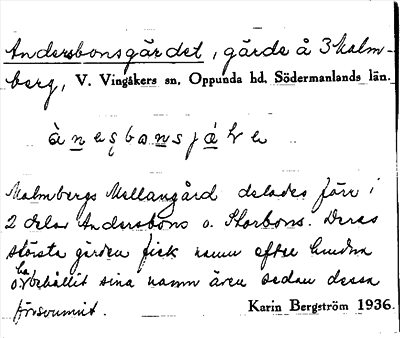 Andersbonsgärdet, gärde å 3 Malm-
berg, V. Vingåkers sn, Oppunda hd, Södermanlands län.
Malmbergs Mellangård delades förr i
2 delar Andersbons o. Storbons. Deras
största gärden fick namn efter
behållit sina namn även sedan dessa
försvunnit. Karin Bergström 1936.